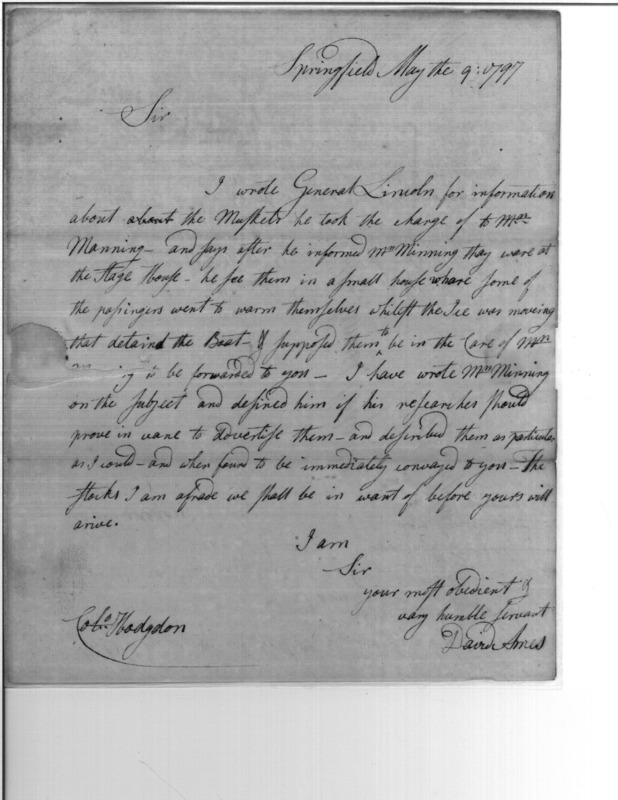 Springfield May the 9: 1797
Sir
I wrote General Lincoln for information
about about the Muskets he took the charge of to Mr
Manning - and says after he informed Mr Minning thay ware at
the Stage House - he see them in a small house whare some of
the passingers went to warm themselves whilest the Ice was moveing
that detaind the Boat - & supposed them to be in the Care of Mr
to be forwarded to you - I have wrote Mr Minning
on the subject and desired him if his researches should
prove in vane to advertise them - and described them as particular
as I could - and when found to be immediately convayed to you - The
stocks I am afrade we shall be in want of before yours will
arive.
I am
Sir
your most obedient &
vary humble servant
David Ames
Colo Hodgdon